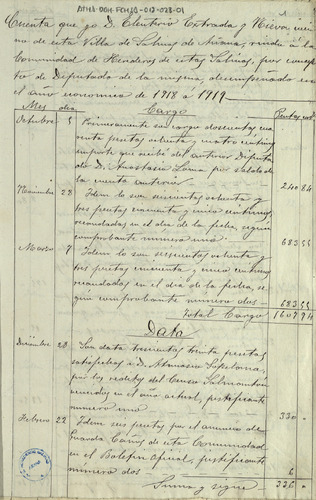 ATHA-DAH-FCHSO-012-023-01
Cuenta que yo D. Eleuterio Estrada y Nieva veci-
no de esta Villa de Salinas de Añana, rindo á la
Comunidad de Herederos de estas Salinas, por concep-
to de Diputado de la misma, desempeñado en
el año económico de 1918 á 1919
Mes día Cargo Pesetas cent
Octubre 5 Primeramente son cargo doscientas cua-
renta pesetas ochenta y cuatro céntimos
importe que recibí del anterior Diputa-
do D. Anastasio Loma por saldo de
la cuenta anterior 240 84
Noviembre 28 Idem lo son seiscientas ochenta y
tres pesetas cincuenta y cinco céntimos
recaudadas en el día de la fecha, según
comprobante número uno 683 55
Marzo 7 Idem lo son seiscientas ochenta y
tres pesetas cincuenta y cinco céntimos
recaudadas en el día de la fecha, se-
gún comprobante número dos 683 55
Total Cargo 1607 94
Data
Diciembre 28 Son data trescientas treinta pesetas
satisfechas a D. Atanasio
por los réditos del Censo Salmantón
vencidos en el año actual, justificante
número uno 330
Febrero 22 Idem seis pesetas por el anuncio de
Guarda Caños de esta Comunidad
en el Boletín Oficial, justificante
número dos 6
Suma y sigue 336